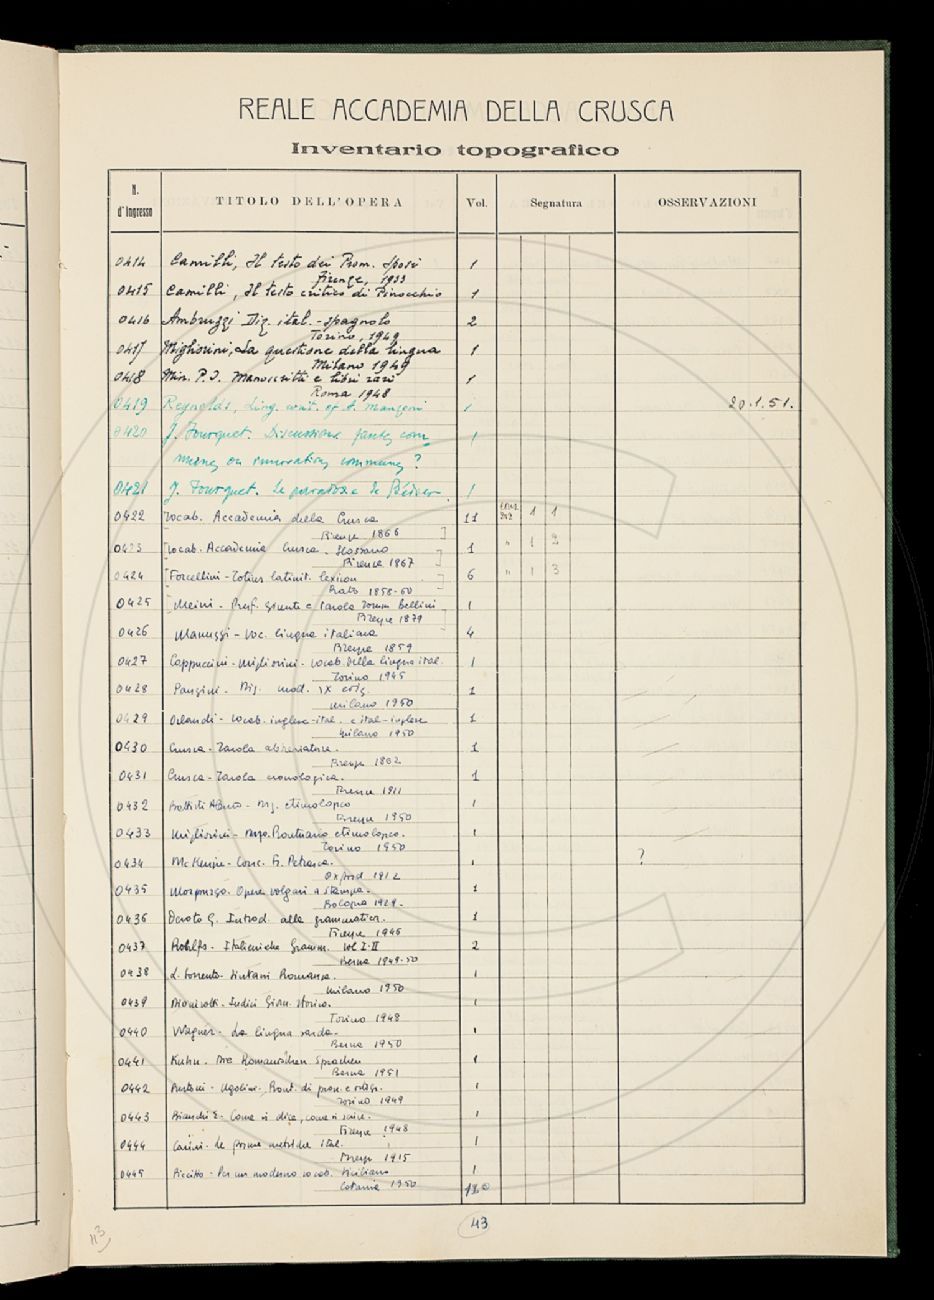 REALE ACCADEMIA DELLA CRUSCA
Inventario topografico
N. d'Ingresso TITOLO DELL'OPERA Vol. Segnatura OSSERVAZIONI
0414 Camilli, Il testo dei Prom. Sposi 1
Firenze, 1933
0415 Camilli, Il testo critico di Pinocchio 1
0416 Ambruzzi Diz. ital.-spagnolo 2
Torino, 1949
0417 Migliorini, La questione della lingua 1
Milano 1949
0418 Min. P.I. Manoscritti e libri rari 1
Roma 1948
0419 Reynolds, Ling. writ. of A. Manzoni 1 20.1.51.
0420 J. Fourquet. Discussion: fautes com 1
munes ou innovations communes ?
0421 J. Fourquet. Le paradoxe de Bédier. 1
0422 Vocab. Accademia della Crusca 11 1 1
Firenze 1866
0423 Vocab. Accademia Crusca - Glossario 1 " 1 2
Firenze 1867
0424 Forcellini - Totius latinit. lexicon 6 " 1 3
Prato 1858-60
0425 Meini - Pref. giunte e tavola Bellini 1
Firenze 1879
0426 Manuzzi - Voc. lingua italiana 4
Firenze 1859
0427 Cappuccini - Migliorini - Vocab. della lingua ital. 1
Torino 1945
0428 Panzini - Diz. mod. IX ediz. 1
Milano 1950
0429 Orlandi - Vocab. inglese-ital. e ital-inglese 1
Milano 1950
0430 Crusca - Tavola abbreviature. 1
Firenze 1862
0431 Crusca - Tavola cronologica. 1
Firenze 1911
0432 Battisti Alessio - Diz. etimologico 1
Firenze 1950
0433 Migliorini - Prontuario etimologico. 1
Torino 1950
0434 McKenzie - Conc. Fr. Petrarca. 1 ?
Oxford 1912
0435 Morpurgo. Opere volgari a stampa. 1
Bologna 1929.
0436 Devoto G. Introd. alla grammatica. 1
Firenze 1946
0437 Rohlfs - Italienische Gramm. vol I-II 2
Berna 1949-50
0438 S. Sorrento. Sintassi Romanza. 1
Milano 1950
0439 Dionisotti. Indici Giorn. storico. 1
Torino 1948
0440 Wagner - La lingua sarda. 1
Berna 1950
0441 Kuhn. Die Romanischen Sprachen 1
Berna 1951
0442 - Ugolini. Pront. di pron. e ortogr. 1
Torino 1949
0443 Bianchi E. Come si dice, come si scrive. 1
Firenze 1948
0444 Le forme metriche ital. 1
Firenze 1915
0445 Piccitto - Per un moderno vocab. siciliano 1
Catania 1950
43
43